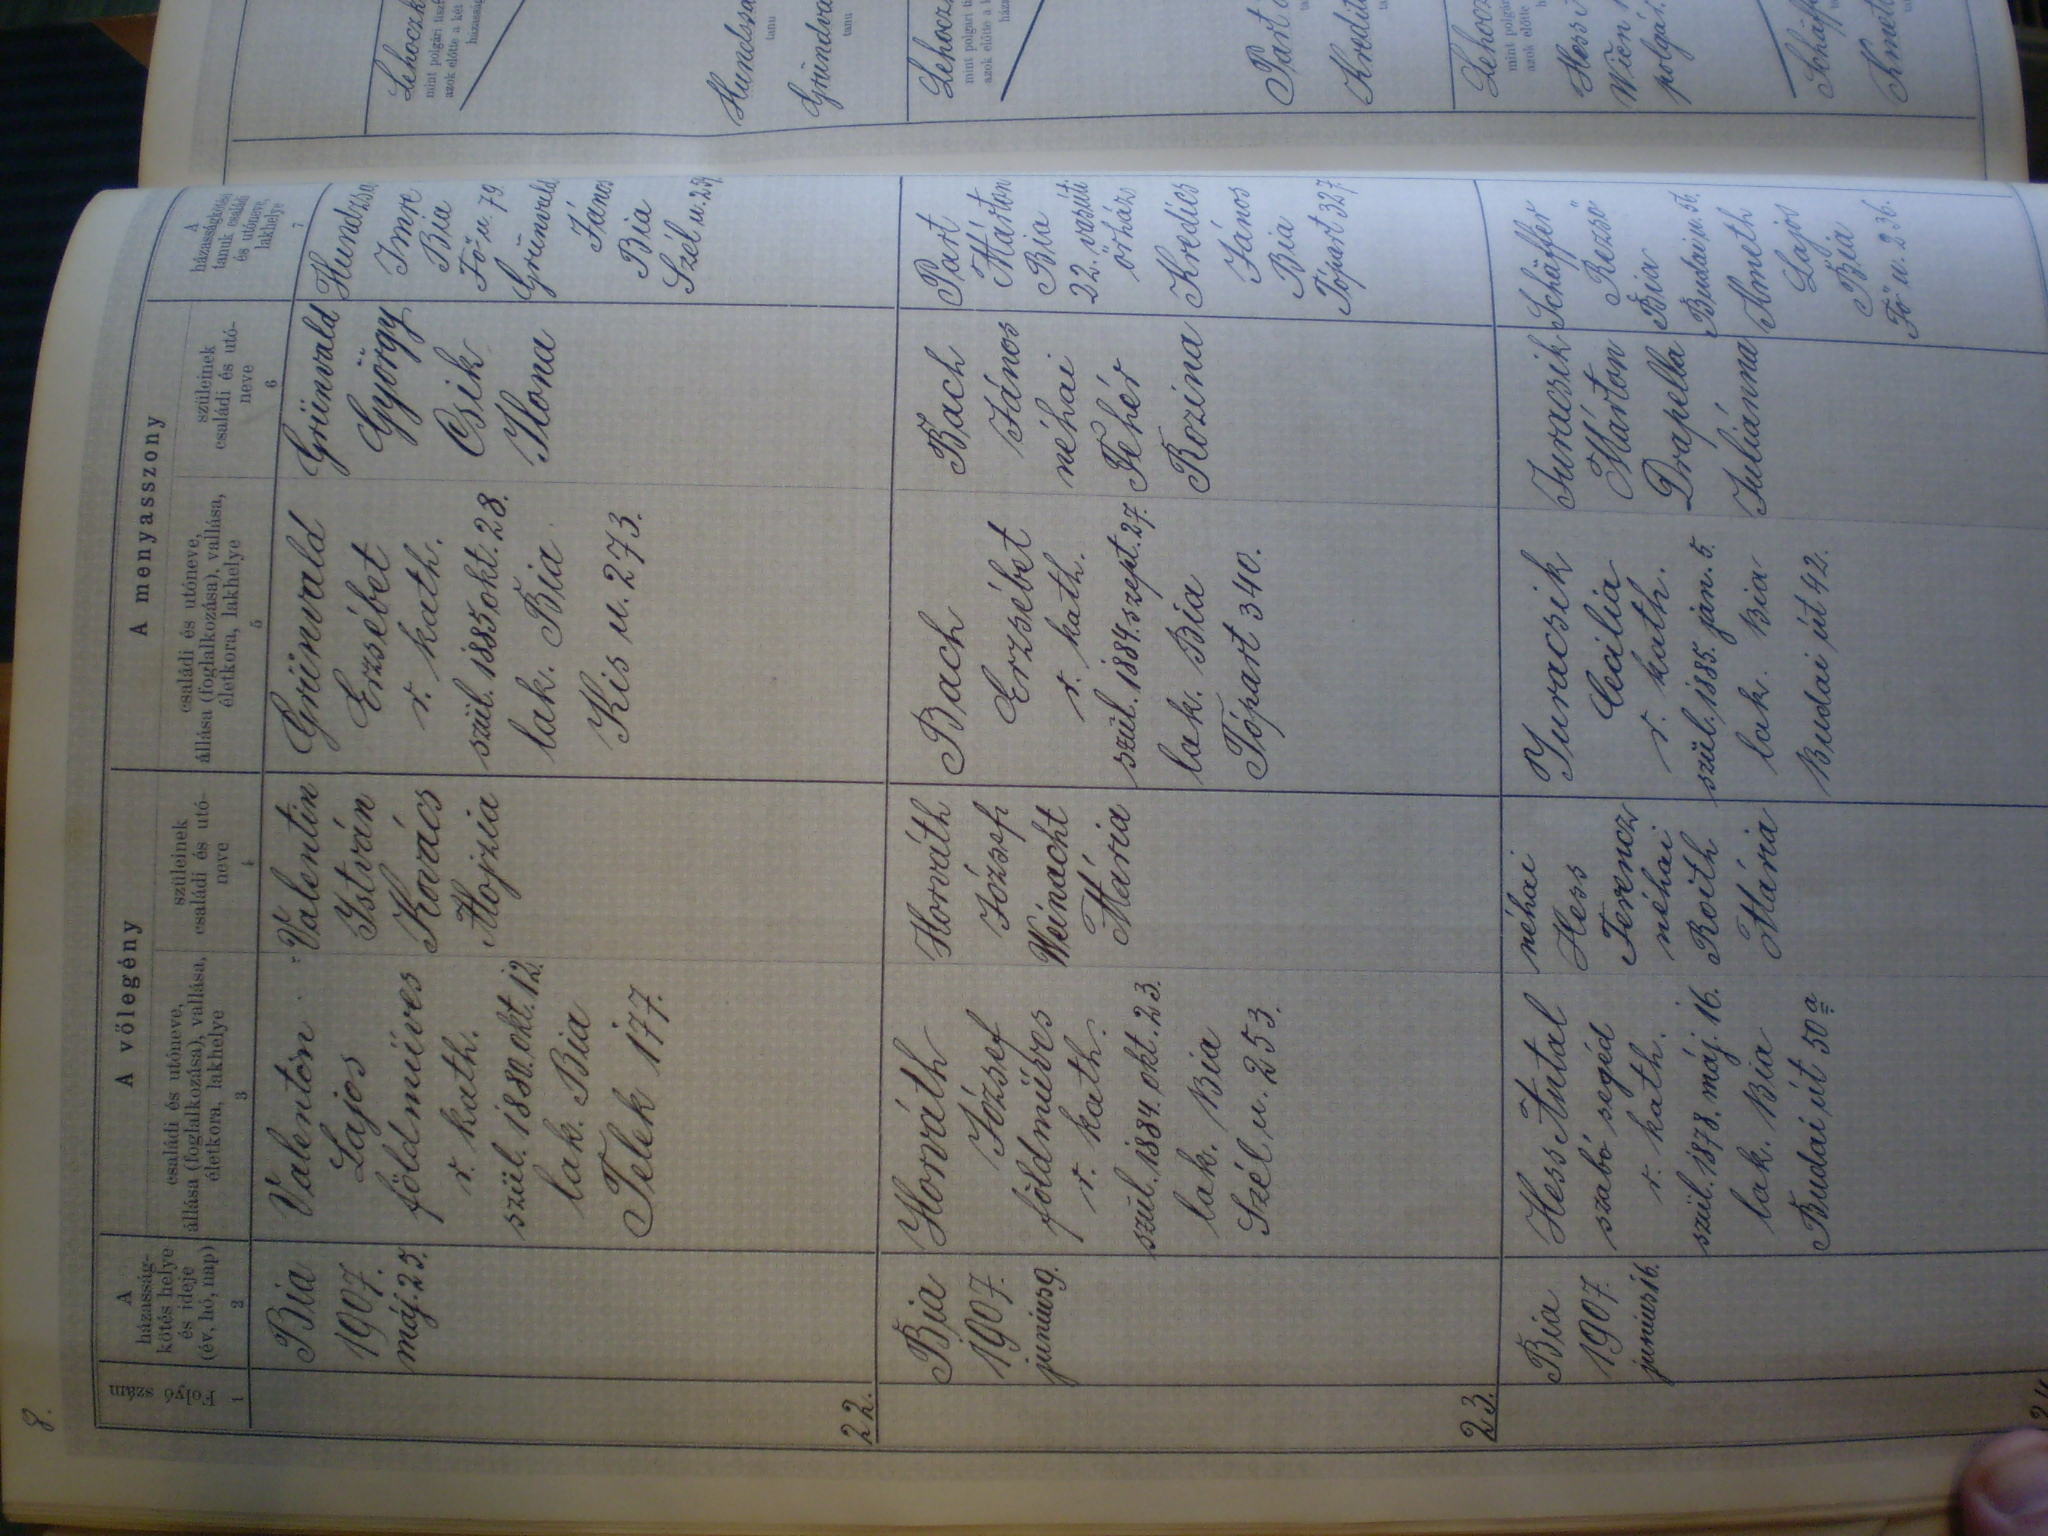 8.
Folyó szám
1
A
házasság-
kötés helye
és ideje
(év, hó, nap)
2
A vőlegény
családi és utóneve,
állása (foglalkozása), vallása,
életkora, lakhelye
3
szüleinek
családi és utó-
neve
4
A menyasszony
családi és utóneve,
állása (foglalkozása), vallása,
életkora, lakhelye
5
szüleinek
családi és utó-
neve
6
A
házasságkötési
tanuk családi
és utóneve,
lakhelye
7
Bia
1907.
máj. 25.
Valentin
Lajos
földmüves
r. kath.
szül. 1880. okt. 12.
lak. Bia
Telek 177.
Valentin
István
Kovács
Alojzia
Grünvald
Erzsébet
r. kath.
szül. 1885 okt. 28.
lak. Bia
Kis u. 273.
Grünvald
György
Csik
Ilona
Imre
Bia
Fő u. 79.
Grünvald
János
Bia
Szél u.
22.
Bia
1907.
junius 9.
Horváth
József
földmüves
r. kath.
szül. 1884. okt. 23.
lak. Bia
Szél u. 253.
Horváth
József
Weinacht
Mária
Bach
Erzsébet
r. kath.
szül. 1884. szept. 27.
lak. Bia
Tópart 340.
Bach
János
néhai
Fehér
Rozina
Part
Márton
Bia
22. vasúti
őrház
Kredics
János
Bia
Tópart 327
23.
Bia
1907.
junius 16.
Hess Antal
szabó segéd
r. kath.
szül. 1878. máj. 16.
lak. Bia
Budai út 50 a
néhai
Hess
Ferencz
néhai
Roith
Mária
Juracsik
Cecilia
r. kath.
szül. 1885. jan. 5.
lak. Bia
Budai út 42.
Juracsik
Márton
Drapella
Juliánna
Schäffer
Rezső
Bia
Budai u.
Kmeth
Lajos
Bia
Fő u. 236.
Lehoczk
mint polgári tisz
azok előtte a két
házasság
tanu
tanu
Lehocz
mint polgári ti
azok előtte a k
ház
Part
Kredit
Lehocz
mint polgár
azok előtte
Hess
Wien
polgár
Schäff
Kmet